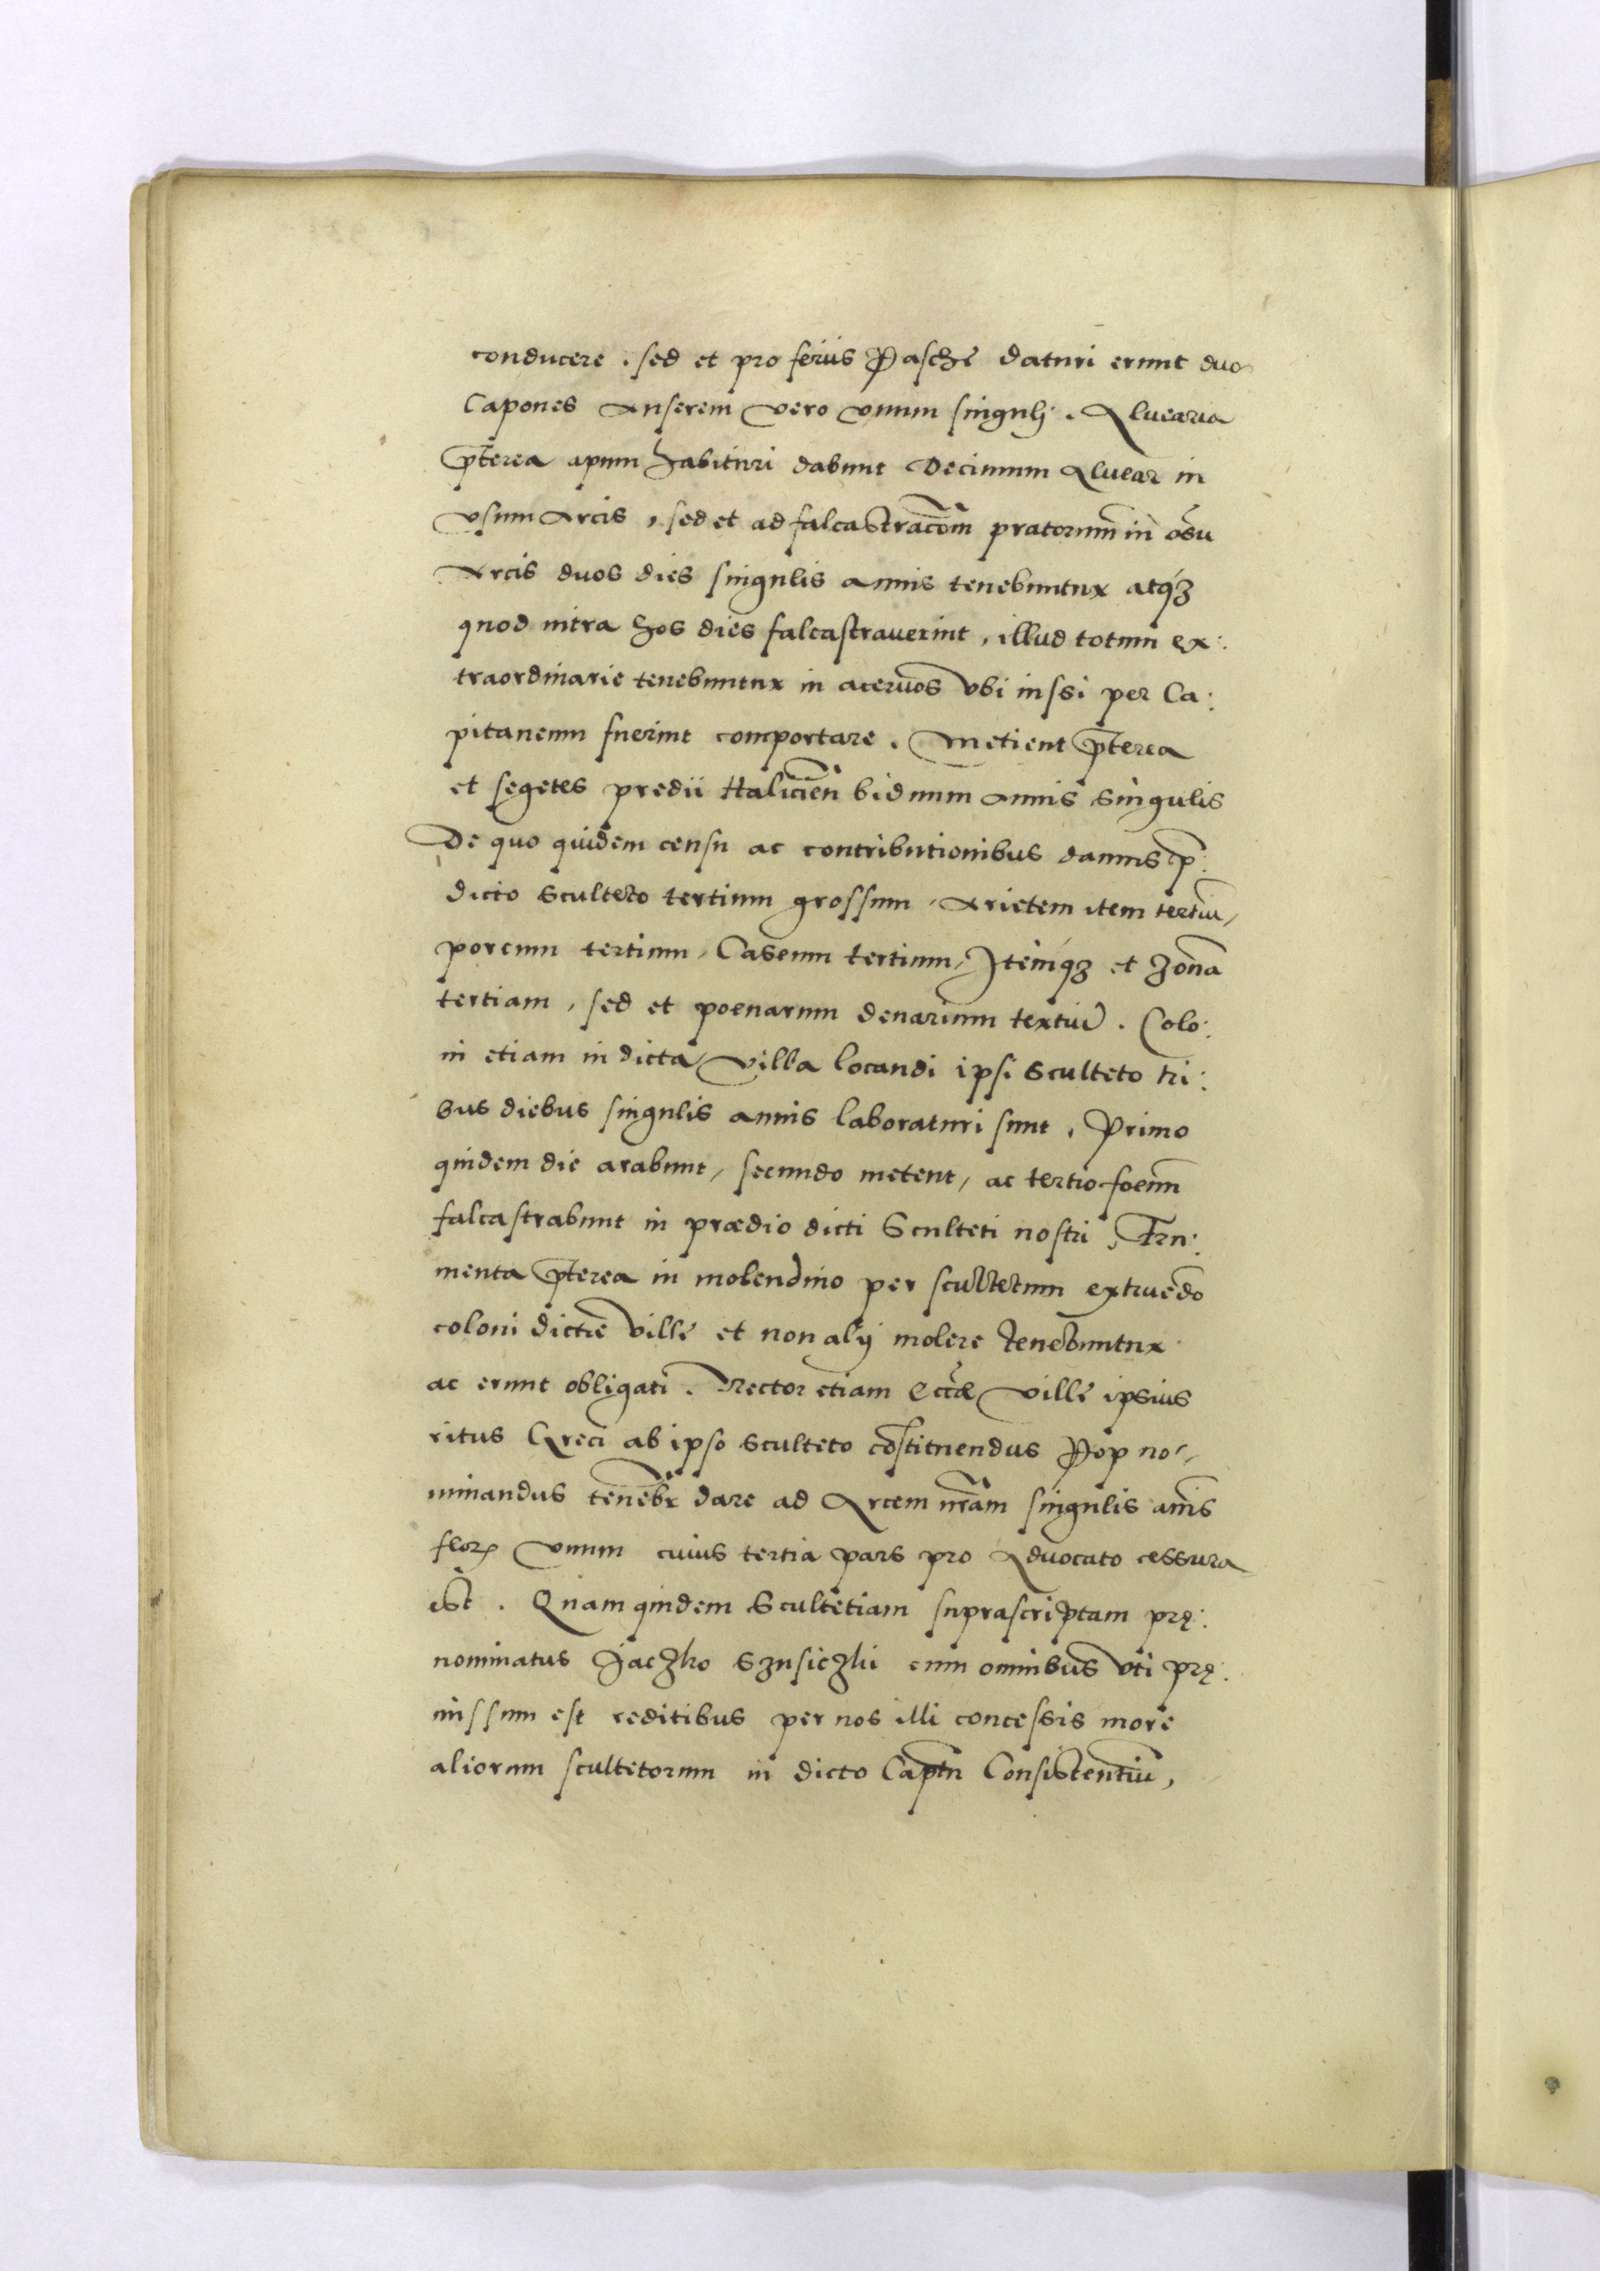 conducere . sed et pro feriis Pasche daturi erunt duos
Capones Anserem vero vnum singuli . Aluearia
p̄terea apum habituri dabunt Decimum Aluear in
vsum Arcis , sed et ad falcastrac̄om̄ pratorum in vsu
Arcis duos dies singulis annis tenebuntur atq́ꝫ
quod intra hos dies falcastrauerint , illud totum ex:
traordinarie tenebuntur in aceruos vbi iussi per Ca:
pitaneum fuerint comportare . Metient p̄terea
et segetes predii Halicień biduum annis singulis
De quo quidem censu ac contributionibus damus p̄:
dicto Sculteto tertium grossum , Arietem item tertiū,
porcum tertium , Caseum tertium , Itemq́ꝫ et Zonā
tertiam , sed et poenarum denarium tertiū . Colo:
ni etiam in dicta villa locandi ipsi Sculteto tri:
bus diebus singulis annis laboraturi sunt . Primo
quidem die arabunt , secundo metent , ac tertio foenū
falcastrabunt in prædio dicti Sculteti nostri , Fru:
menta p̄terea in molendino per scultetum extruēdo
coloni dictæ ville et non alij molere tenebuntur
ac erunt obligati . Rector etiam Eccłæ ville ipsius
ritus Greci ab ipso sculteto cōstituendus Pop no-
minandus tenebr̄ dare ad Arcem nr̄am singulis annis
flor̄ vnum cuius tertia pars pro Aduocato cessura
est . Quam quidem Scultetiam suprascriptam prę:
nominatus Jaczko Szusiczki cum omnibus vti prę:
missum est reditibus per nos illi concessis more
aliorum scultetorum in dicto Capt̄n Consistentiū ,